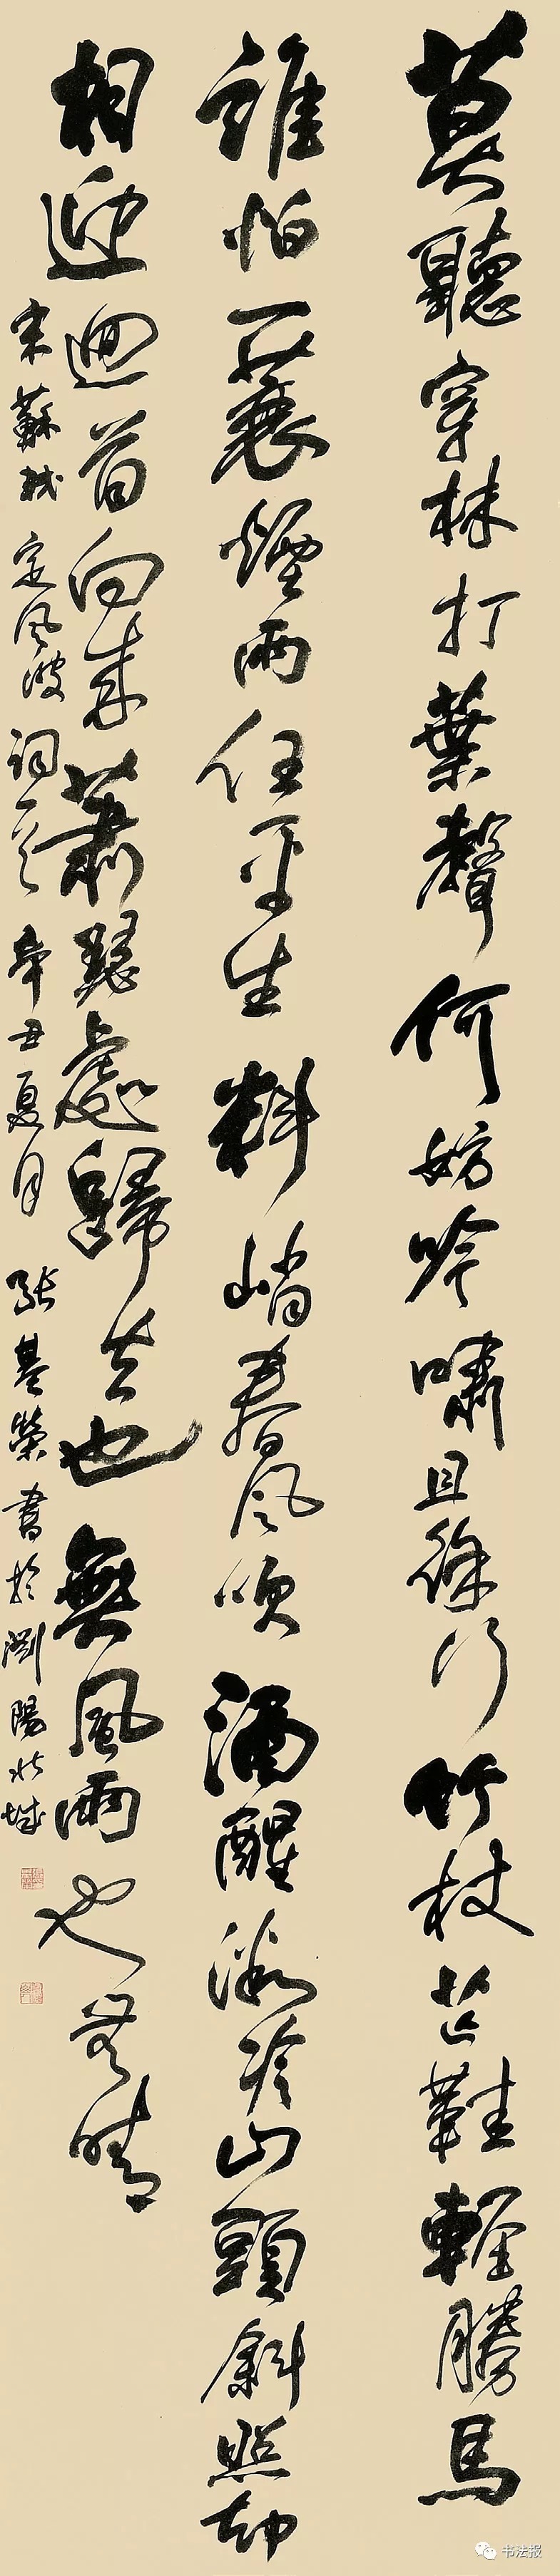 莫聽穿林打葉聲何妨吟嘯且徐行竹杖芒鞋輕勝馬
誰怕一蓑煙雨任平生料峭春風吹酒醒微冷山頭斜照却
相迎迴首向来蕭瑟處歸去也無風雨也無晴
宋蘇軾定風波詞一首辛丑夏月張基榮書於瀏陽北城
书法报